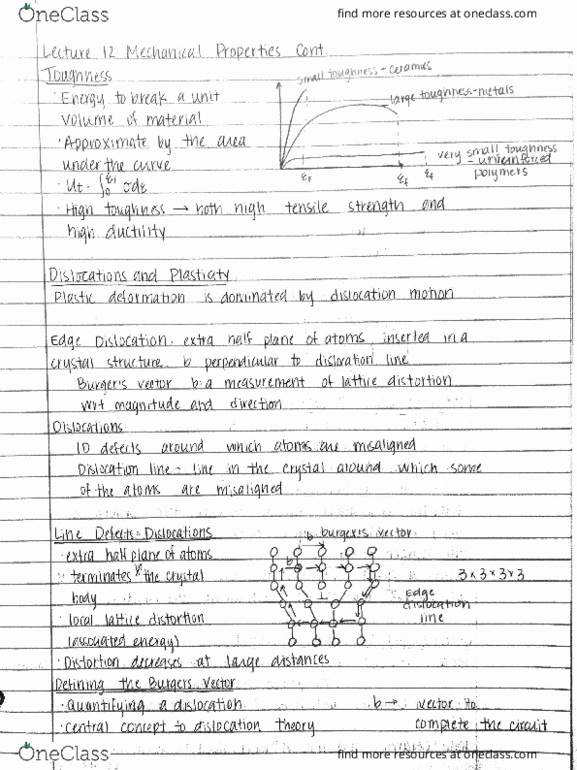 OneClass
find more resources at oneclass.com
Lecture 12 Mechanical Properties Cont.
Toughness
· Energy to break a unit
volume of material
· Approximate by the area
under the curve
· Ut = ∫₀^εf σdε
· High toughness → both high tensile strength and
high ductility
small toughness - ceramics
large toughness - metals
very small toughness
- unreinforced
polymers
εf
εf
εf
Dislocations and Plasticity
Plastic deformation is dominated by dislocation motion
Edge Dislocation · extra half plane of atoms inserted in a
crystal structure b perpendicular to dislocation line
Burger's vector b: a measurement of lattice distortion
wrt magnitude and direction
Dislocations
1D defects around which atoms are misaligned
Dislocation line = line in the crystal around which some
of the atoms are misaligned
Line Defects = Dislocations
· extra half plane of atoms
terminates the crystal
body
· local lattice distortion
(associated energy)
· Distortion decreases at large distances
b burger's vector
b
3 x 3 x 3 x 3
Edge
dislocation
line
Defining the Burgers Vector
· Quantifying a dislocation
· central concept to dislocation theory
b → vector to
complete the circuit
OneClass
find more resources at oneclass.com